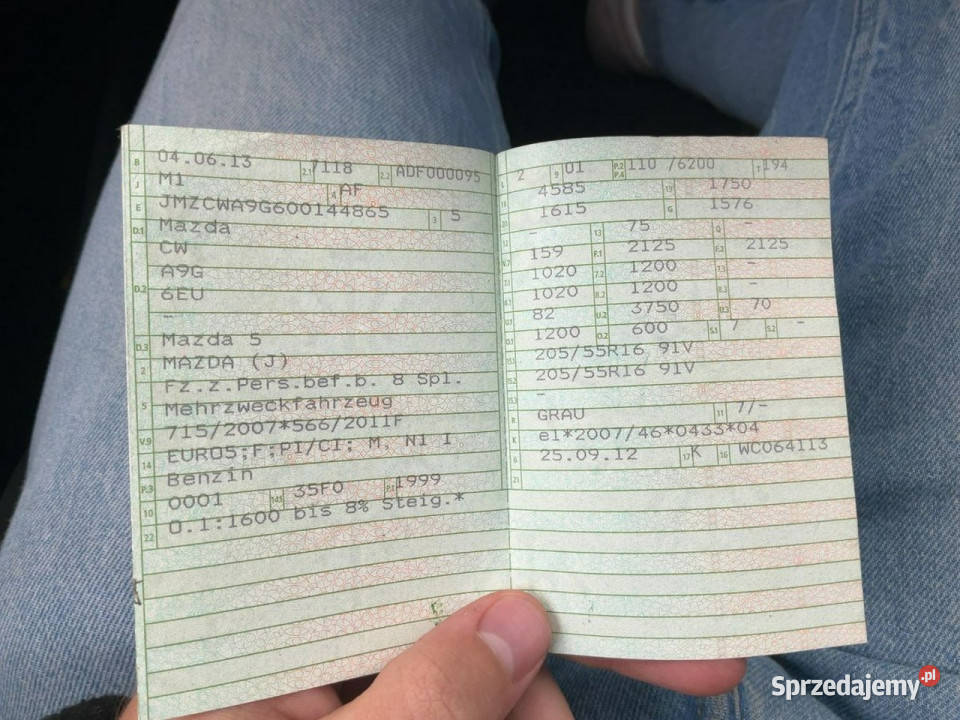 B 04.06.13 2.1 7118 2.2 ADF000095
J M1 4 AF
E JMZCWA9G600144865 3 5
D.1 Mazda
CW
D.2 A9G
6EU
-
D.3 Mazda 5
2 MAZDA (J)
Fz.z.Pers.bef.b. 8 Spl.
5 Mehrzweckfahrzeug
V.9 715/2007*566/2011F
14 EURO5;F;PI/CI; M, N1 I
P.3 Benzin
10 0001 14.1 35F0 P.1 1999
22 O.1:1600 bis 8% Steig.*
L 2 9 01 P.2 P.4 110 /6200 T 194
18 4585 19 1750
20 1615 G 1576
12 - 13 75 Q -
V.7 159 F.1 2125 F.2 2125
7.1 1020 7.2 1200 7.3 -
8.1 1020 8.2 1200 8.3 -
U.1 82 U.2 3750 U.3 70
O.1 1200 O.2 600 S.1 7 S.2 -
15.1 205/55R16 91V
15.2 205/55R16 91V
15.3 -
R GRAU 11 7/-
K e1*2007/46*0433*04
6 25.09.12 17 K 16 WC064113
21
Sprzedajemy.pl